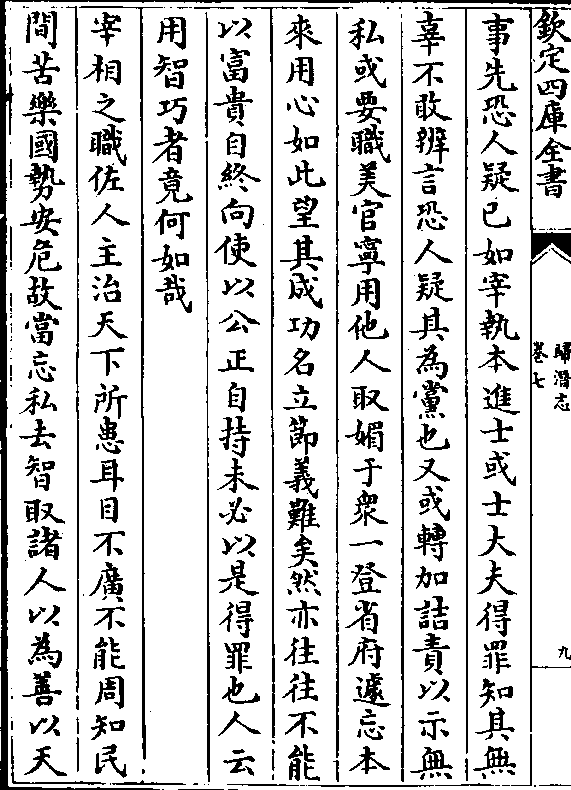 欽定四庫全書
歸潛志
卷七
九
事先恐人疑已如宰執本進士或士大夫得罪知其無
辜不敢辨言恐人疑其為黨也又或轉加詰責以示無
私或要職美官寧用他人取媚于衆一登省府遽忘本
來用心如此望其成功名立節義難矣然亦往往不能
以富貴自終向使以公正自持未必以是得罪也人云
用智巧者竟何如哉
宰相之職佐人主治天下所患耳目不廣不能周知民
間苦樂國勢安危故當忘私去智取諸人以為善以天